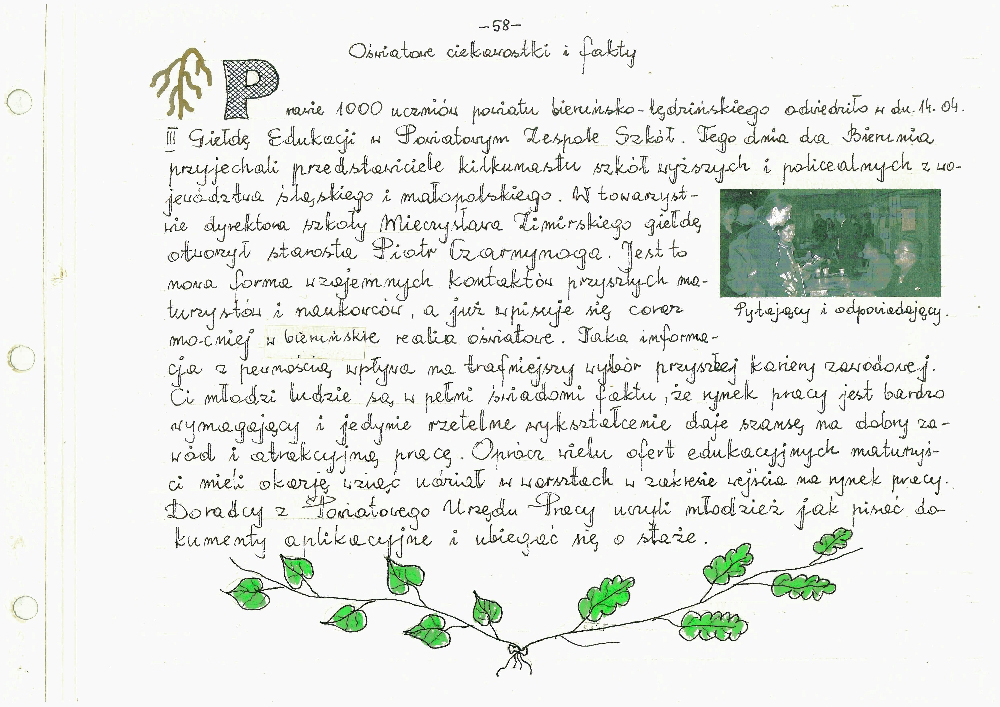 -58-
Oświatowe ciekawostki i fakty
Prawie 1000 uczniów powiatu bieruńsko-lędzińskiego odwiedziło w dn. 14.04.
III Giełdę Edukacji w Powiatowym Zespole Szkół. Tego dnia do Bierunia
przyjechali przedstawiciele kilkunastu szkół wyższych i policealnych z wo-
jewództwa śląskiego i małopolskiego. W towarzyst-
wie dyrektora szkoły Mieczysława Zimirskiego giełdę
otworzył starosta Piotr Czarnynoga. Jest to
nowa forma wzajemnych kontaktów przyszłych ma-
turzystów i naukowców, a już wpisuje się coraz
mocniej w bieruńskie realia oświatowe. Taka informa-
cja z pewnością wpływa na trafniejszy wybór przyszłej kariery zawodowej.
Ci młodzi ludzie są w pełni świadomi faktu, że rynek pracy jest bardzo
wymagający i jedynie rzetelne wykształcenie daje szansę na dobry za-
wód i atrakcyjną pracę. Oprócz wielu ofert edukacyjnych maturzyś-
ci mieli okazję wziąć udział w warsztach w zakresie wejścia na rynek pracy.
Doradcy z Powiatowego Urzędu Pracy uczyli młodzież jak pisać do-
kumenty aplikacyjne i ubiegać się o staże.
Pytający i odpowiadający.